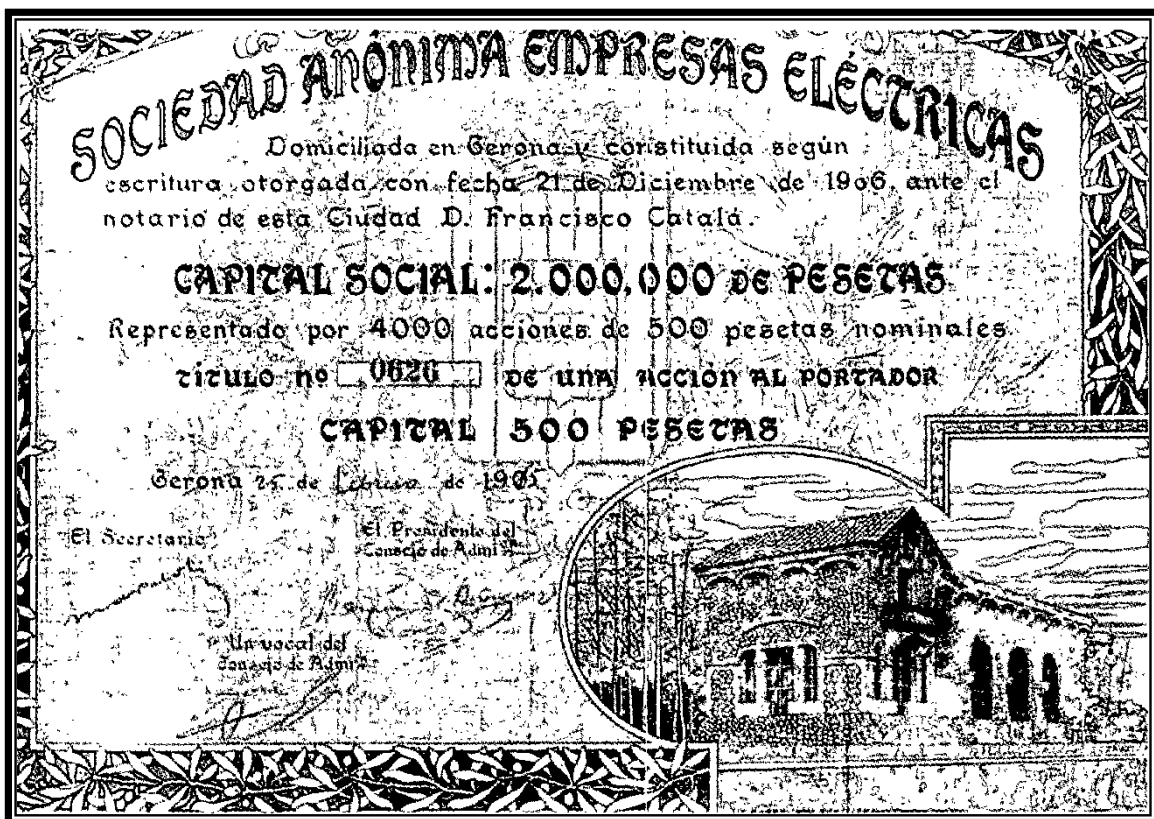 SOCIEDAD ANÓNIMA EMPRESAS ELÉCTRICAS
Domiciliada en Gerona y constituida según
escritura otorgada con fecha 21 de Diciembre de 1906 ante el
notario de esta Ciudad D. Francisco Catalá.
CAPITAL SOCIAL: 2.000,000 DE PESETAS
Representado por 4000 acciones de 500 pesetas nominales
TÍTULO Nº 0626 DE UNA ACCIÓN AL PORTADOR
CAPITAL 500 PESETAS
Gerona 25 de Febrero de 190
El Secretario
El Presidente del
Consejo de Admi
Un vocal del
Consejo de Admi